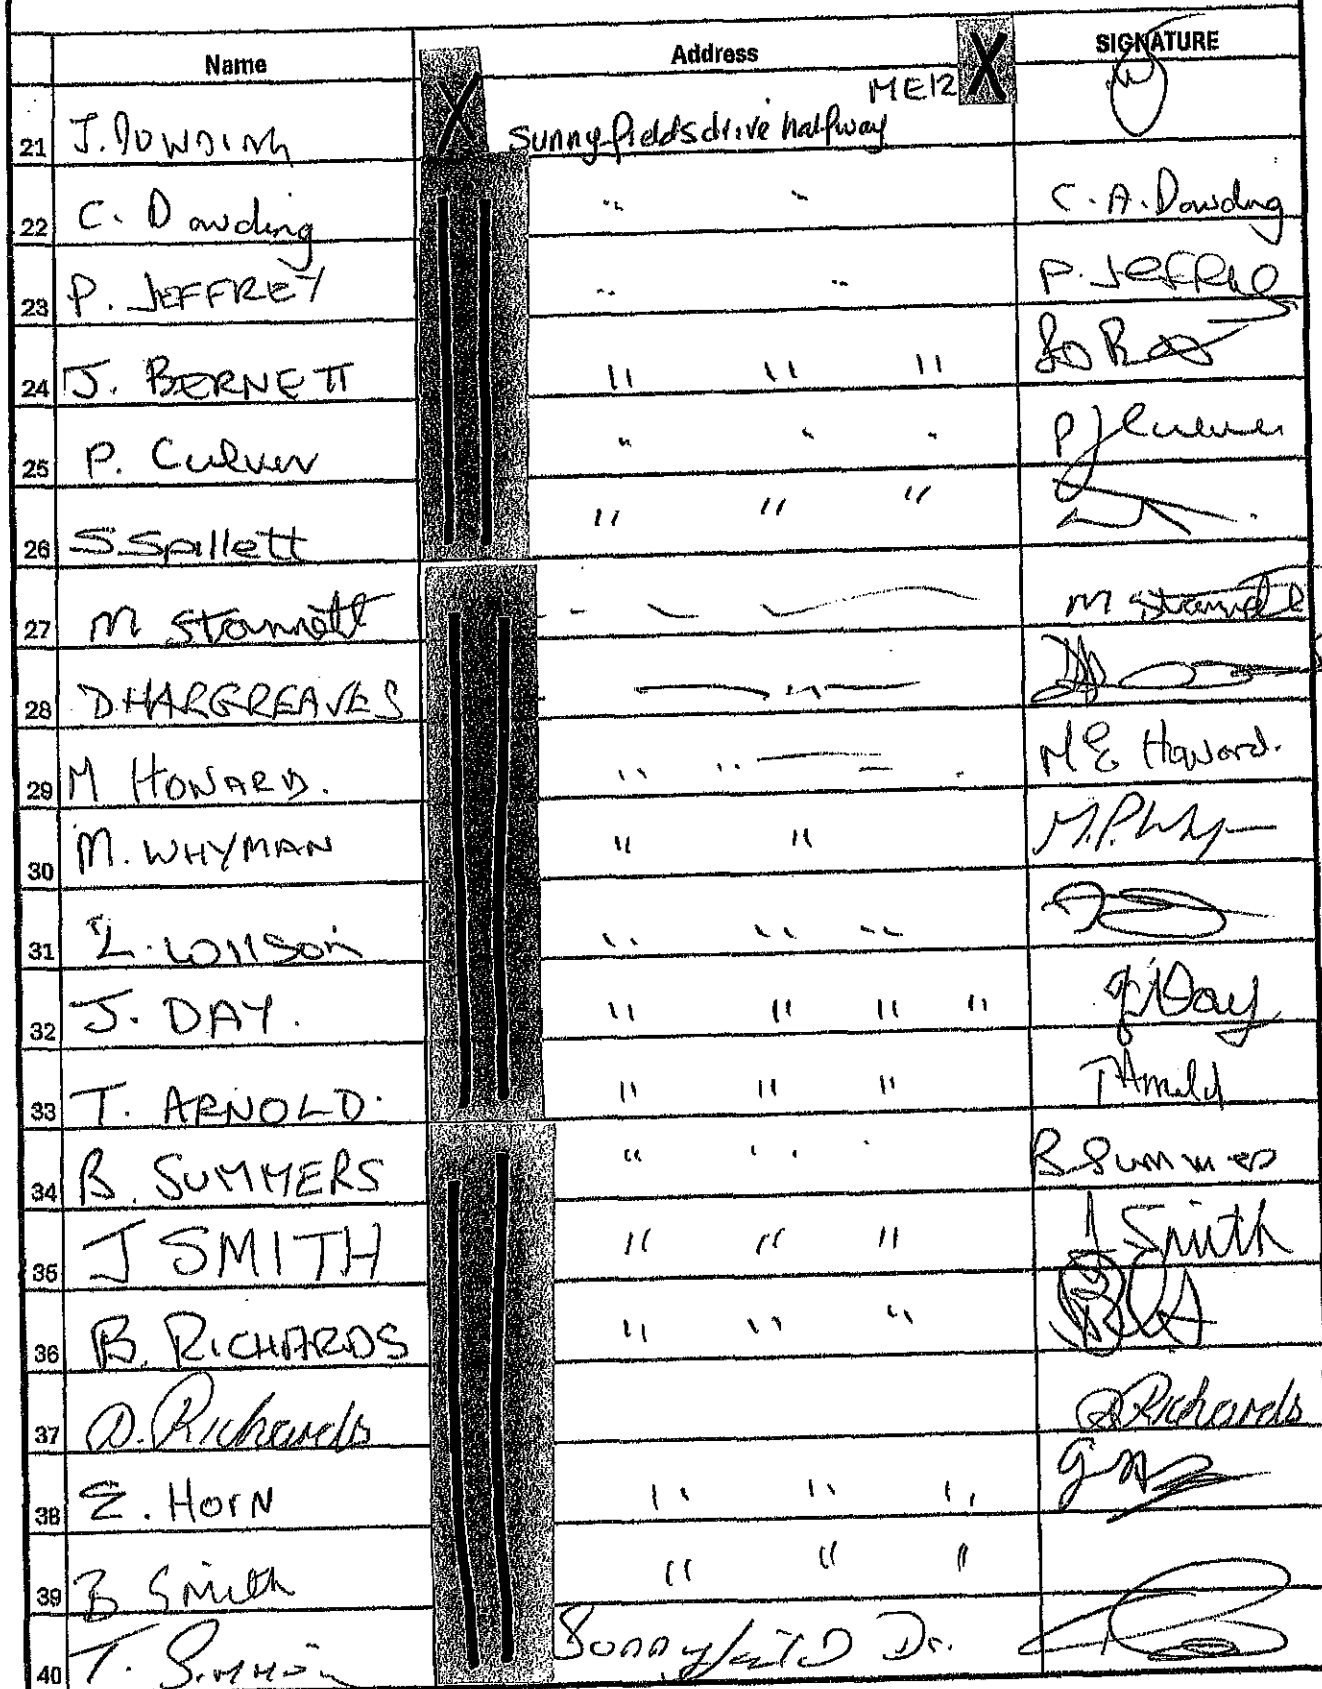 Name Address SIGNATURE
ME12
21 J. DOWDING Sunnyfields drive halfway
22 C. Dowding " " C. A. Dowding
23 P. JEFFREY " " P. Jeffrey
24 J. BERNETT " " "
25 P. Culver " " " P J Culver
26 S. Spillett " " "
27 M Stannett M Stannett
28 D HARGREAVES "
29 M HOWARD. " " M E Howard.
30 M. WHYMAN " " M.P. Why
31 L. Willson " " "
32 J. DAY. " " " " J Day
33 T. ARNOLD. " " " T Arnold
34 B. SUMMERS " " B Summers
35 J SMITH " " " J Smith
36 B. RICHARDS " " "
37 D. Richards D Richards
38 E. HORN " " "
39 B Smith " " "
40 T. Sunnyfield Dr.